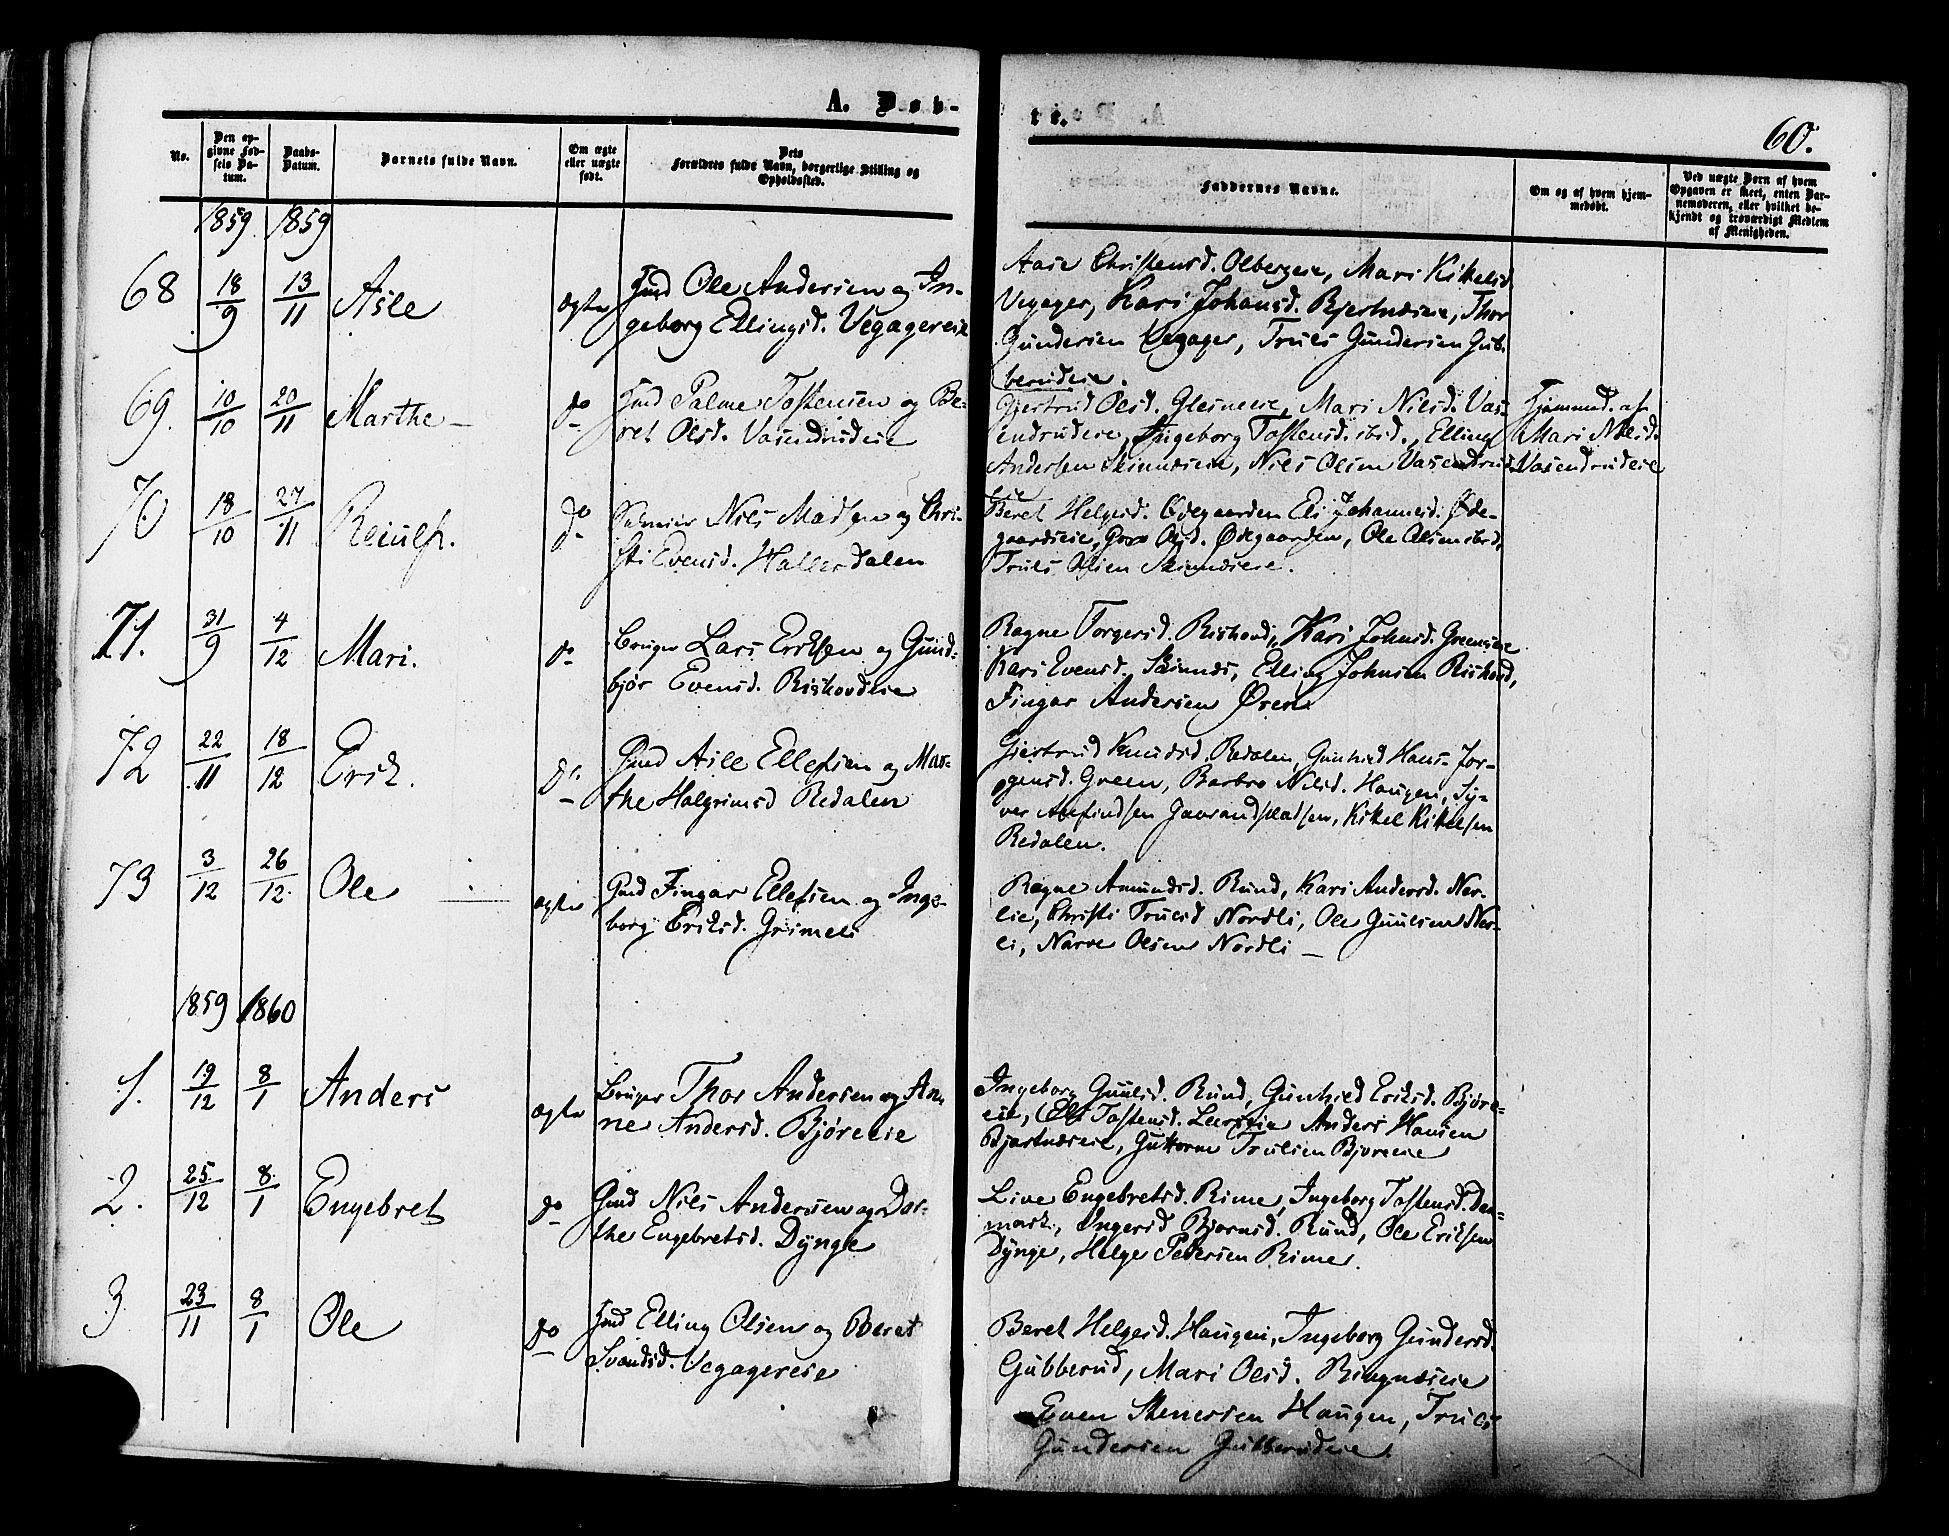 A. Døb-
te.
60.
No.
Den op-
givne Fød-
sels Da-
tum.
Daabs-
Datum.
Barnets fulde Navn.
Om ægte
eller uægte
født.
Dets
Forældres fulde Navn, borgerlige Stilling og
Opholdssted.
Faddernes Navne.
Om og af hvem hjem-
medøbt.
Ved uægte Børn af hvem
Opgaven er skeet, enten Bar-
nemoderen, eller hvilket be-
kjendt og troværdigt Medlem
af Menigheden.
1859. 1859
68 18/9 13/11 Asle ægte Gmd Ole Andersen og In-
geborg Ellingsd. Vegagereie
Aase Christensd. Olbergeie, Mari Kittelsd
Vegager, Kari Johansd. Bjertnæseie, Thor
Gundersen Vegager, Truls Gundersen Gub-
berudeie.
69. 10/10 20/11 Marthe – do Gmd Palme Tostensen og Be-
ret Olsd. Vasendrudeie
Gjertrud Olsd. Glesneeie, Mari Nilsd. Vas-
endrudeie, Ingeborg Tostensd. ibid., Elling
Andersen Skinnæseie, Nils Olsen Vasendrud
Hjemmed. af
Mari Nilsd.
Vasendrudeie
70 18/10 27/11 Reiulf. do Nils Madsen og Chri-
sti Evensd. Hallerdalen
Beret Helgesd. Ødegaarden Eli Johannesd. Øde-
gaardseie, Goro Olsd. Ødegaarden, Ole Olsen ibid,
Truls Olsen Skinnæseie.
71. 31/9 4/12 Mari. do Bruger Lars Eriksen og Gund-
bjør Evensd. Rishovdeie
Ragne Torgersd. Rishovd, Kari Johnsd. Greeneie
Kari Evensd. Skinnæs, Elling Johnsen Rishovd,
Fingar Andersen Øren
72 22/11 18/12 Erik. do Gmd Asle Ellefsen og Mar-
the Halgrimsd Redalen
Gjertrud Knudsd. Redalen, Gunhild Hans Jør-
gensd. Green, Barbro Nilsd. Haugen, Sy-
ver Gavrandpladsen, Kittel Kittelsen
Redalen.
73 3/12 26/12. Ole ægte Gmd Fingar Ellefsen og Inge-
borg Eriksd. Grimeli
Ragne Amundsd. Rund, Kari Andersd. Ner-
lie, Christi Trulsd Nordli, Ole Guulsen Ner-
li, Narve Olsen Nordli –
1859 1860
1. 19/12 8/1 Anders ægte Bruger Thor Andersen og An-
ne Andersd. Bjøreeie
Ingeborg Guulsd. Rund, Gunhild Eriksd. Bjøre-
eie, Eli Tostensd. Anders Hansen
Bjertnæseie, Guttorm Trulsen Bjøreeie
2. 25/12 8/1 Engebret do Gmd Nils Andersen og Dor-
the Engebretsd. Dynge
Live Engebretsd. Rime, Ingeborg Tostensd. Dan-
mark, Ingerid Bjørnsd. Rund, Ole Eriksen
Dynge, Helge Pedersen Rime.
3 23/11 8/1 Ole do Gmd Elling Olsen og Beret
Svendsd. Vegagereie
Beret Helgesd. Haugen, Ingeborg Gundersd.
Gubberud, Mari Olsd. Ringnæseie
Even Stenersen Haugen, Truls
Gundersen Gubberudeie.